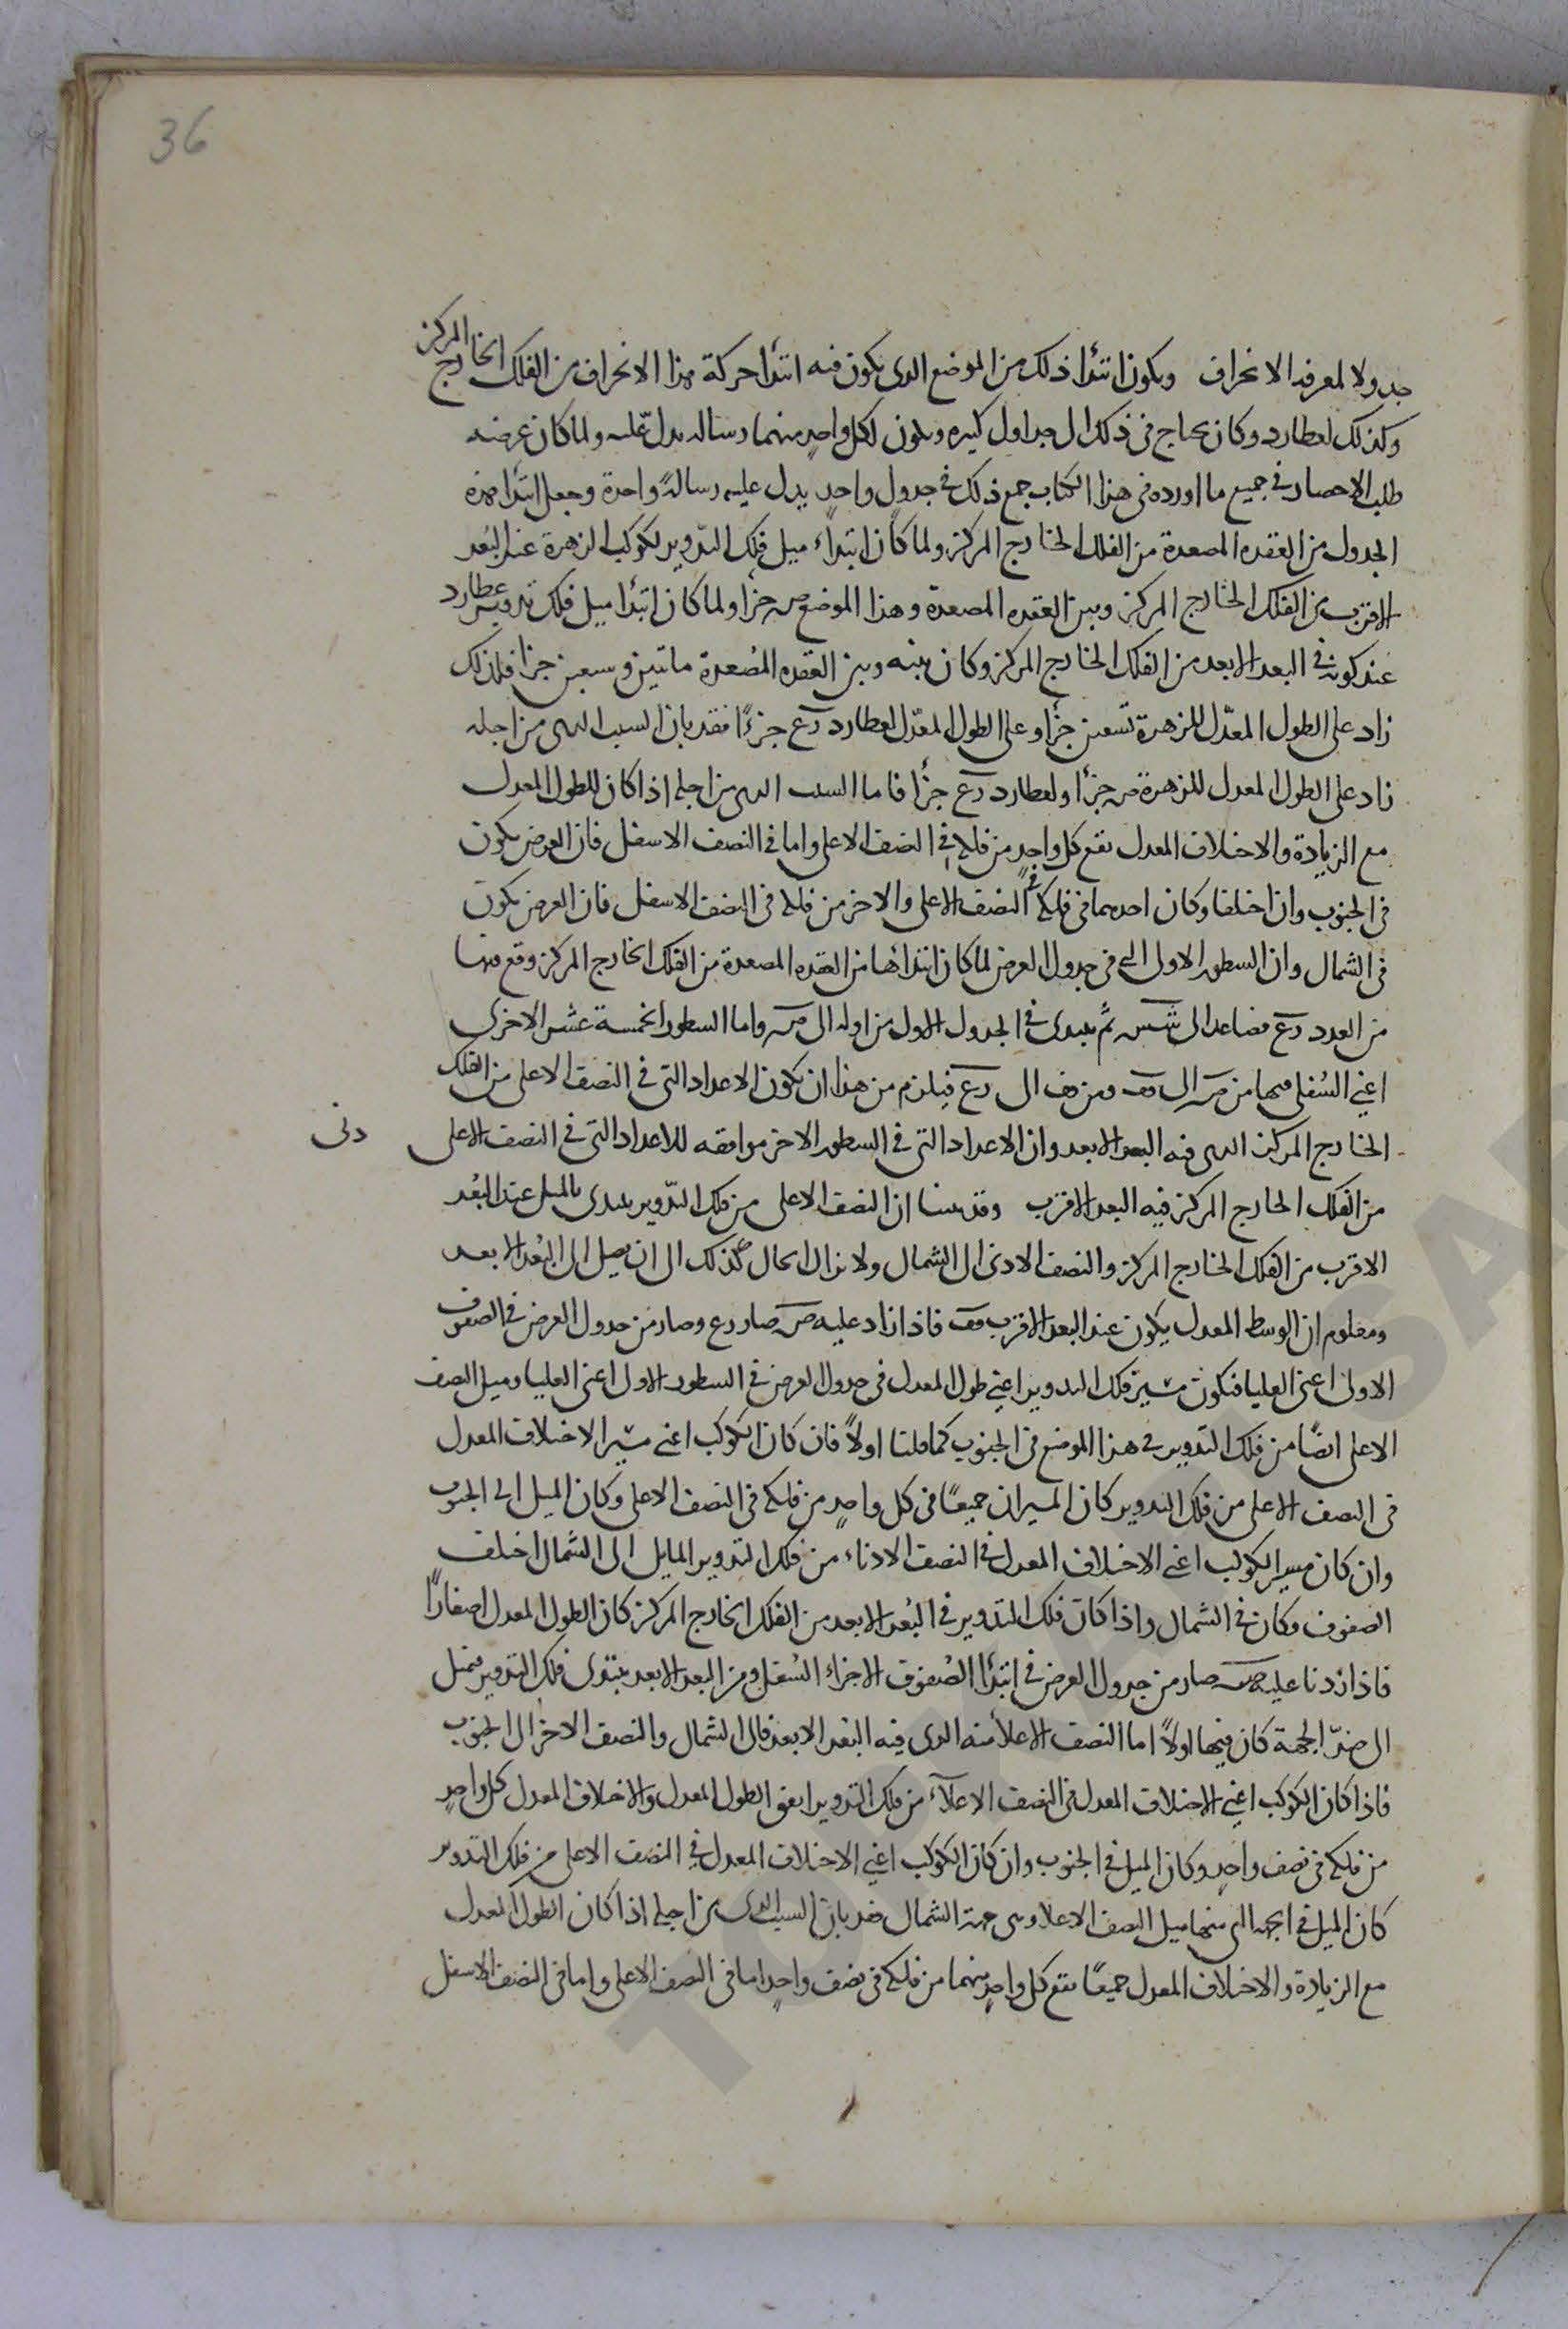 36
جدولا لمعرفه الانحراف ويكون ابتدأ ذلك من الموضع الدى يكون فيه ابتدأ حركة هذا الانحراف من الفلك الخارج المركز
وكذلك لعطارد وكان يحتاج فى ذلك الى جداول كثيره ويكون لكل واحد منهما رساله تدل عليه ولما كان غرضه
طلب الاختصار فى جميع ما اورده فى هذا الكتاب جمع ذلك فى جدول واحد يدل عليه رسالةً واحدة وجعل ابتدأ هذه
الجدول من العقده المصعدة من الفلك الخارج المركز ولما كان ابتداء ميل فلك التدوير لكوكب الزهرة عند البُعد
الاقرب من الفلك الخارج المركز وبين العقده المصعدة وهذا الموضع ص جزأ ولما كان ابتدأ ميل فلك تدوير عطارد
عند كونه فى البعد الابعد من الفلك الخارج المركز وكان بينه وبين العقده المُصعدة مائتين وسبعين جزأ فلذلك
زاد على الطول المعدّل للزهرة تسعين جزأ وعلى الطول المعدّل لعطارد رع جزءًا فقد بان السبب الدى من اجله
زاد على الطول المعدل للزهرة ص جزأ ولعطارد رع جزأ فاما السبب الدى من اجله اذا كان للطول المعدل
مع الزيادة والاختلاف المعدل يقع كل واحدٍ من فلكه فى النصف الاعلى واما فى النصف الاسفل فان العرض يكون
فى الجنوب وان اختلفا وكان احدهما فى فلكه فى النصف الاعلى والاخر من فلكه فى النصف الاسفل فان العرض يكون
فى الشمال وان السطور الاول التى فى جدول العرض لما كان ابتداها من العقده المصعدة من الفلك الخارج المركز وقع فيها
من العدد رع فصاعدا الى شس ثمَّ يبتدى فى الجدول الاول من اوله الى ص واما السطور الخمسة عشر الاخرى
اعنى السُفلى فيها من ص الى قف ومن قف الى رع فيلزم من هذا ان يكون الاعداد التى فى النصف الاعلى من الفلك
الخارج المركز الدى فيه البعد الابعد وان الاعداد التى فى السطور الاخر موافقه للاعداد التى فى النصف الاعلى
دنى
من الفلك الخارج المركز فيه البعد الاقرب وقد بينا ان النصف الاعلى من فلك التدوير يبتدى بالميل عند البُعد
الاقرب من الفلك الخارج المركز والنصف الادنى الى الشمال ولا يزال الحال كذلك الى ان يصل الى البُعد الابعد
ومعلوم ان الوسط المعدل يكون عند البعد الاقرب قف فاذا زاد عليه ص صار رع وصار من جدول العرض فى الصفوف
الاولى اعنى العليا فيكون مسير فلك التدوير اعنى طول المعدل فى جدول العرض فى السطور الاول اعنى العليا وميل النصف
الاعلى ايضًا من فلك التدوير فى هذا الموضع فى الجنوب كما قلنا اولاً فان كان الكوكب اعنى مسير الاختلاف المعدل
فى النصف الاعلى من فلك التدوير كان المسيران جميعًا فى كل واحدٍ من فلكه فى النصف الاعلى وكان الميل الى الجنوب
وان كان مسير الكوكب اعنى الاختلاف المعدل فى النصف الادناء من فلك التدوير المايل الى الشمال اختلف
الصفوف وكان فى الشمال واذا كان فلك التدوير فى البُعد الابعد من الفلك الخارج المركز كان الطول المعدل اصفارًا
فاذا زدنا عليه ص صار من جدول العرض فى ابتدأ الصُفوف الاجزاء السُفلى ومن البعد الابعد يبتدى فلك التدوير فيميل
الى ضدّ الجهة كان فيها اولاً اما النصف الاعلا منه الدى فيه البُعد الابعد فالى الشمال والنصف الاخر الى الجنوب
فاذا كان الكوكب اعنى الاختلاف المعدل فى النصف الاعلاَء من فلك التدوير اتفق الطول المعدل والاختلاف المعدل كل واحدٍ
من فلكه فى نصف واحدٍ وكان الميل فى الجنوب وان كان الكوكب اعنى الاختلاف المعدل فى النصف الاعلى من فلك التدوير
كان الميل فى الجهه التى منها ميل النصف الاعلا وهى جهة الشمال فقد بان السبب الدى من اجله اذا كان الطول المعدل
مع الزيادة والاختلاف المعدل جميعًا يقع كل واحدٍ منهما من فلكه فى نصف واحدٍ اما فى النصف الاعلى واما فى النصف الاسفل